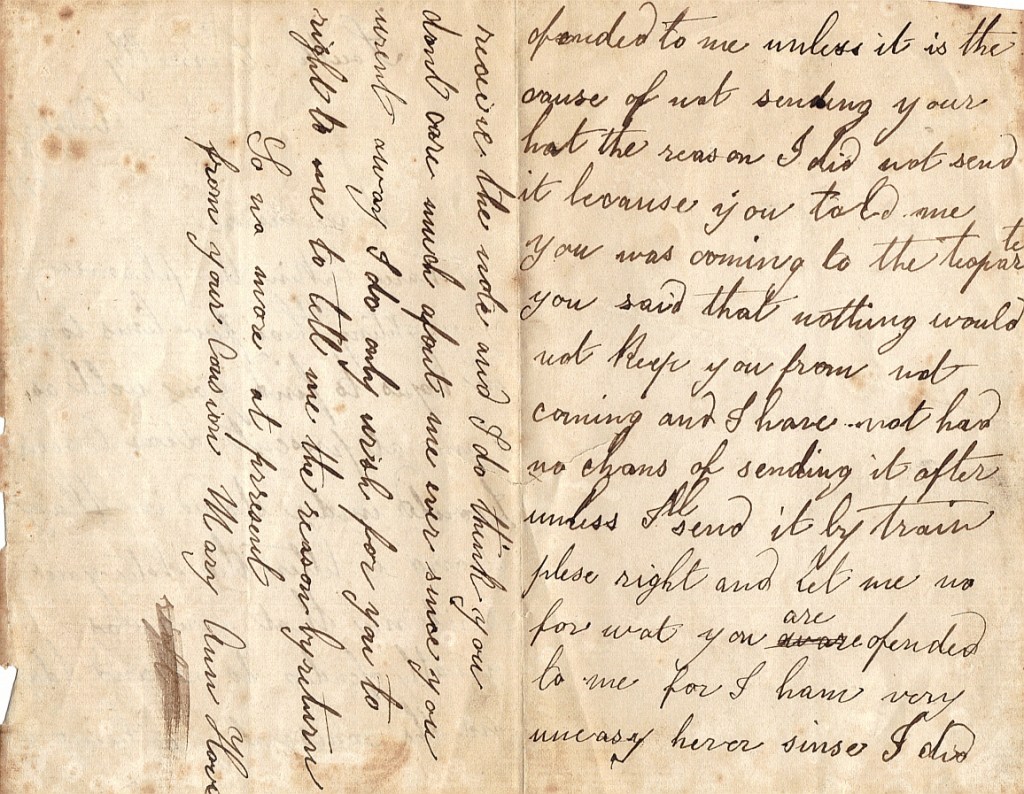 ofended to me unless it is the
cause of not sending your
hat the reason I did not send
it because you told me
you was coming to the teaparte
you said that nothing would
not keep you from not
coming and I have not had
no chans of sending it after
unless I'll send it by train
plese right and let me no
for wat you are ofended
to me for I ham very
uneasy hever sinse I did
receive the note and I do think you
dont care much afout me ever since you
went away I do only wish for you to
right to me to tell me the reason by return
So no more at present
from your Cousion Mary Ann Hove